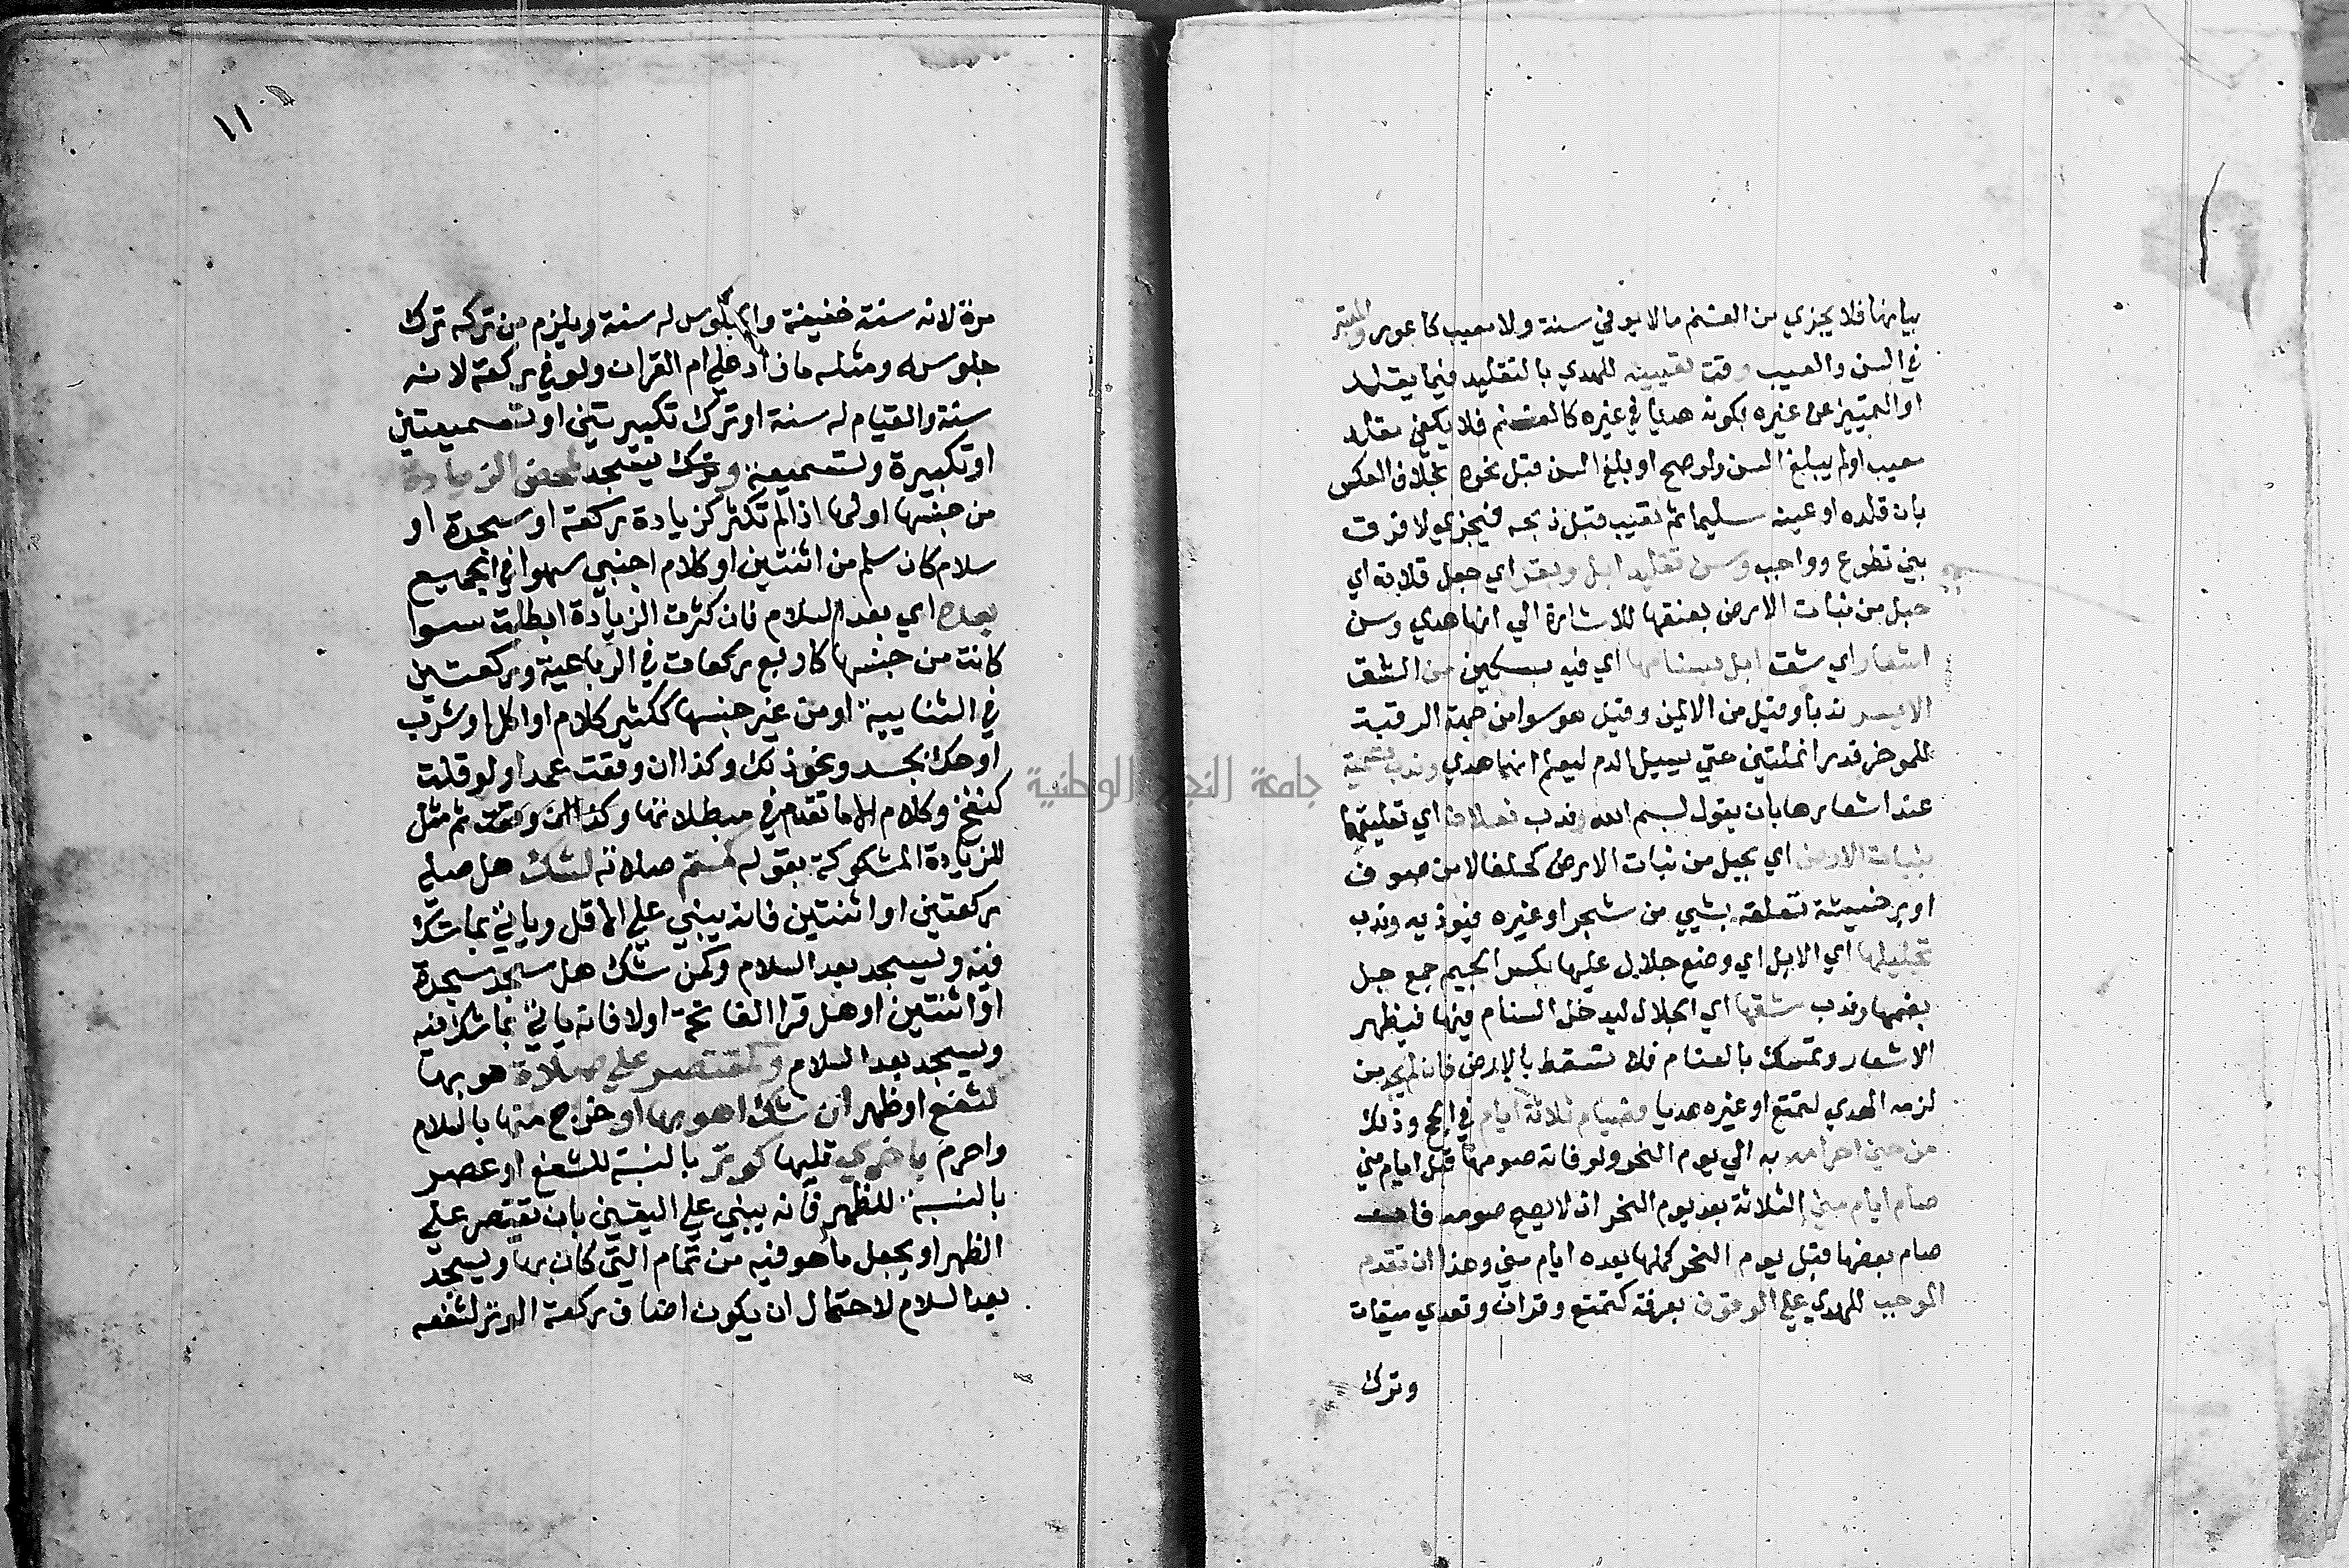 بيانها فلا يجزي من الغنم ما لا يوفي سنة ولا معيب كاعور والمعتبر
في السن والعيب وقت تعيينه للهدي بالتقليد فيما يقلد
او التمييز عن غيره بكونه هديا في غيره كالغنم فلا يكفي مقلد
معيب او لم يبلغ السن ولو صح او بلغ السن قبل نحره بخلاف العكس
بان قلده او عينه سليما ثم تعيب قبل ذبحه فيجزي ولا فرق
بين تطوع وواجب وسن تقليد ابل وبقر اي جعل قلادة اي
حبل من نبات الارض بعنقها للاشارة الي انها هدي وسن
اشعار اي شق ابل بسنامها اي فيه بسكين من الشق
الايسر ندبا وقيل من الايمن وقيل هو سوا من جهة الرقبة
للموخر قدر انملتين حتي يسيل الدم ليعلم انها هدي وندب تسمية
عند اشعارها بان يقول بسم الله وندب نعلان اي تعليقها
بنبات الارض اي بحبل من نبات الارض كحلفا لا من صوف
او بر خشية تعلقه بشي من شجر او غيره فيوذيه وندب
تجليلها اي الابل اي وضع جلال عليها بكسر الجيم جمع جل
بضمها وندب شقها اي الجلال ليدخل السنام فيها فيظهر
الاشعار وتمسك بالسنام فلا تسقط بالارض فان لم يجد من
لزمه الهدي لتمتع او غيره هديا فصيام ثلاثة ايام في الحج وذلك
من حين احرامه به الي يوم النحر ولو فاته صومها قبل ايام مني
صام ايام مني الثلاثة بعد يوم النحر اذ لا يصح صومه فان
صام بعضها قبل يوم النحر كملها بعده ايام مني وهذا ان تقدم
الموجب للهدي علي الوقوف بعرفة كتمتع وقران وتعدي ميقات
وترك
١١
مرة لانه سنة خفيفة والجلوس له سنة ويلزم من تركه ترك
جلوسه ومثله ما زاد علي ام القران ولو في ركعة لانه
سنة والقيام له سنة او ترك تكبيرتين او تسميعتين
او تكبيرة وتسميعة وترك يسجد لمحض الزيادة
من جنسها اولها اذا لم تكثر كزيادة ركعة او سجدة او
سلام كان سلم من اثنتين او كلام اجنبي سهوا في الجميع
بعده اي بعد السلام فان كثرت الزيادة ابطلت سوا
كانت من جنسها كاربع ركعات في الرباعية وركعتين
في الثنايية او من غير جنسها ككثير كلام او اكل او شرب
او حك بجسد ونحو ذلك وكذا ان وقعت عمدا ولو قلت
كنفخ وكلام الا ما تقدم في مبطلاتها وكذا ان وقعت ثم مثل
للزيادة المشكوكة بقوله كمتم صلاته لشك هل صلي
ركعتين او اثنتين فانه يبني علي الاقل وياتي بما شك
فيه ويسجد بعد السلام وكمن شك هل سجد سجدة
او اثنتين او هل قرا الفاتحة اولا فانه ياتي بما شك فيه
ويسجد بعد السلام وكمقتصر علي صلاة هو بها
كشفع او ظهر ان شك اهو بها او خرج منها بالسلام
واحرم باخري تليها كوتر بالنسبة للشفع او عصر
بالنسبة للظهر فانه يبني علي اليقين بان يقتصر علي
الظهر او يجعل ما هو فيه من تمام التي كان بها ويسجد
بعد السلام لاحتمال ان يكون اضاف ركعة الوتر لشفعه
جامعة النجاح الوطنية